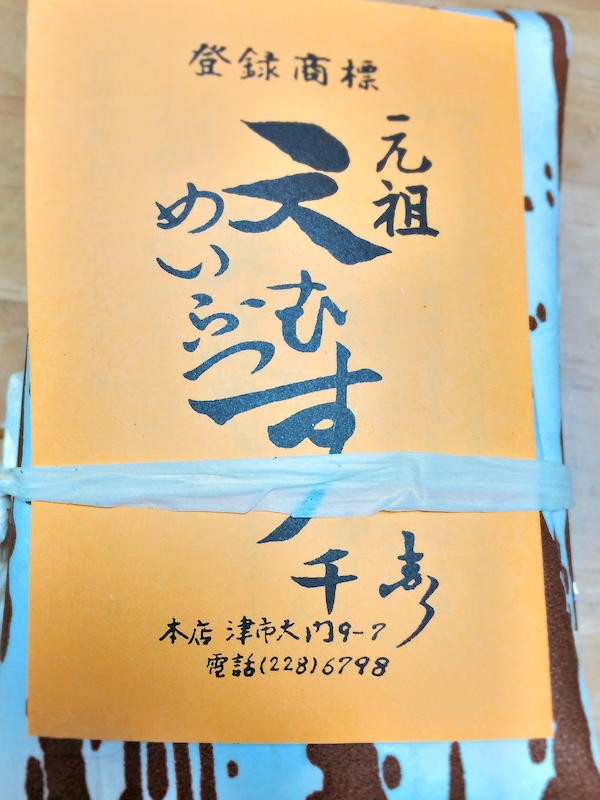 登録商標
元祖
天むす
めいぶつ
千寿
本店 津市大門9-7
電話(228)6798